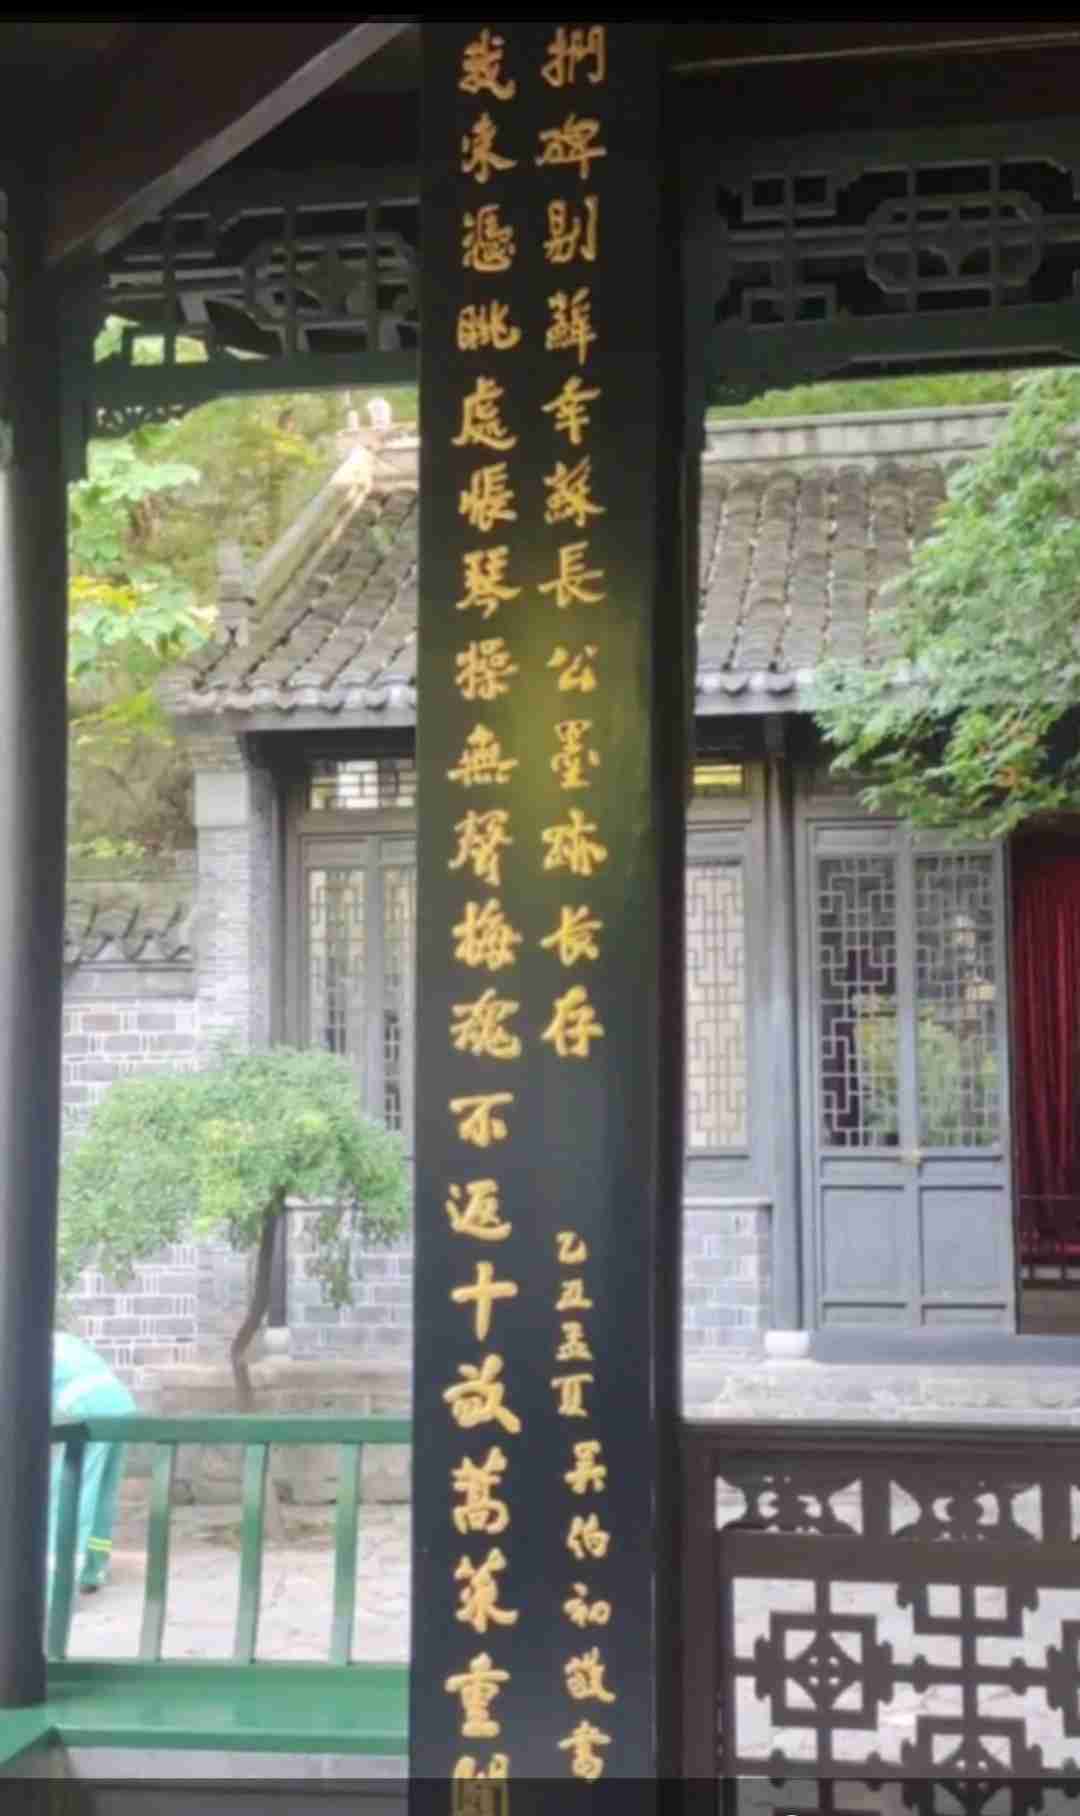 我来憑眺處悵琴操無聲梅魂不返十畝蒿萊重
捫碑剔蘚幸蘇長公墨跡长存
乙丑孟夏 吴伯初敬書